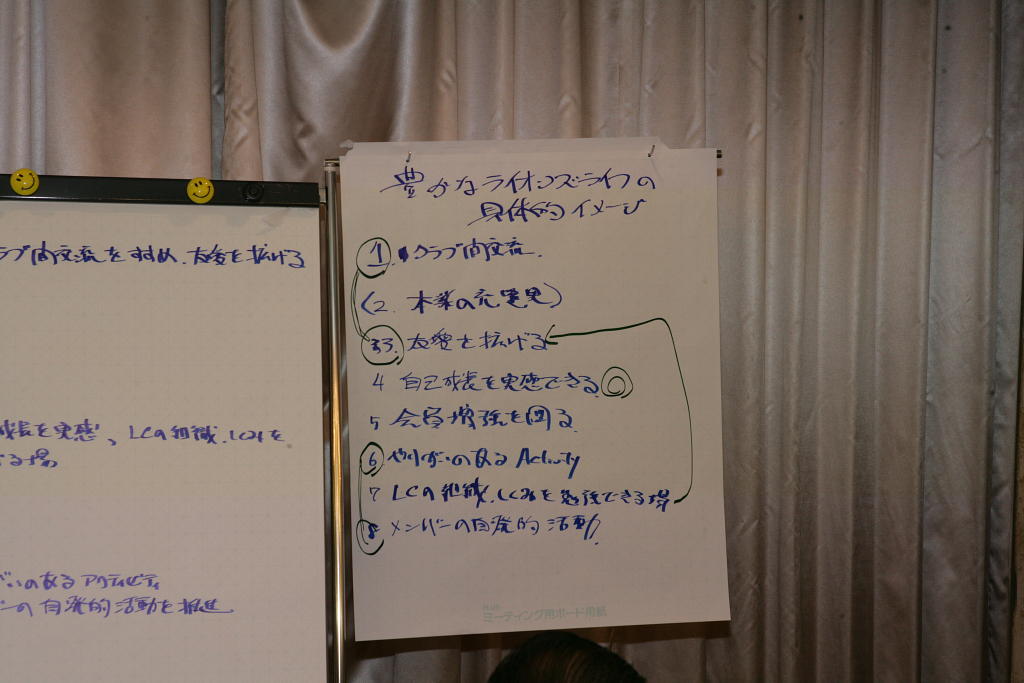 豊かなライオンズライフの
具体的イメージ
1. クラブ間交流.
(2. 本業の充実)
3. 友愛を拡げる
4 自己成長を実感できる ◎
5 会員増強を図る
6 やりがいのある Activity
7 LCの組織、を勉強できる場
8 メンバーの自発的活動
ラブ間交流をすすめ、友愛を拡げる
成長を実感、LCの組織、を
る場
がいのあるアクティビティ
ーの自発的活動を推進
ミーティング用ボード用紙